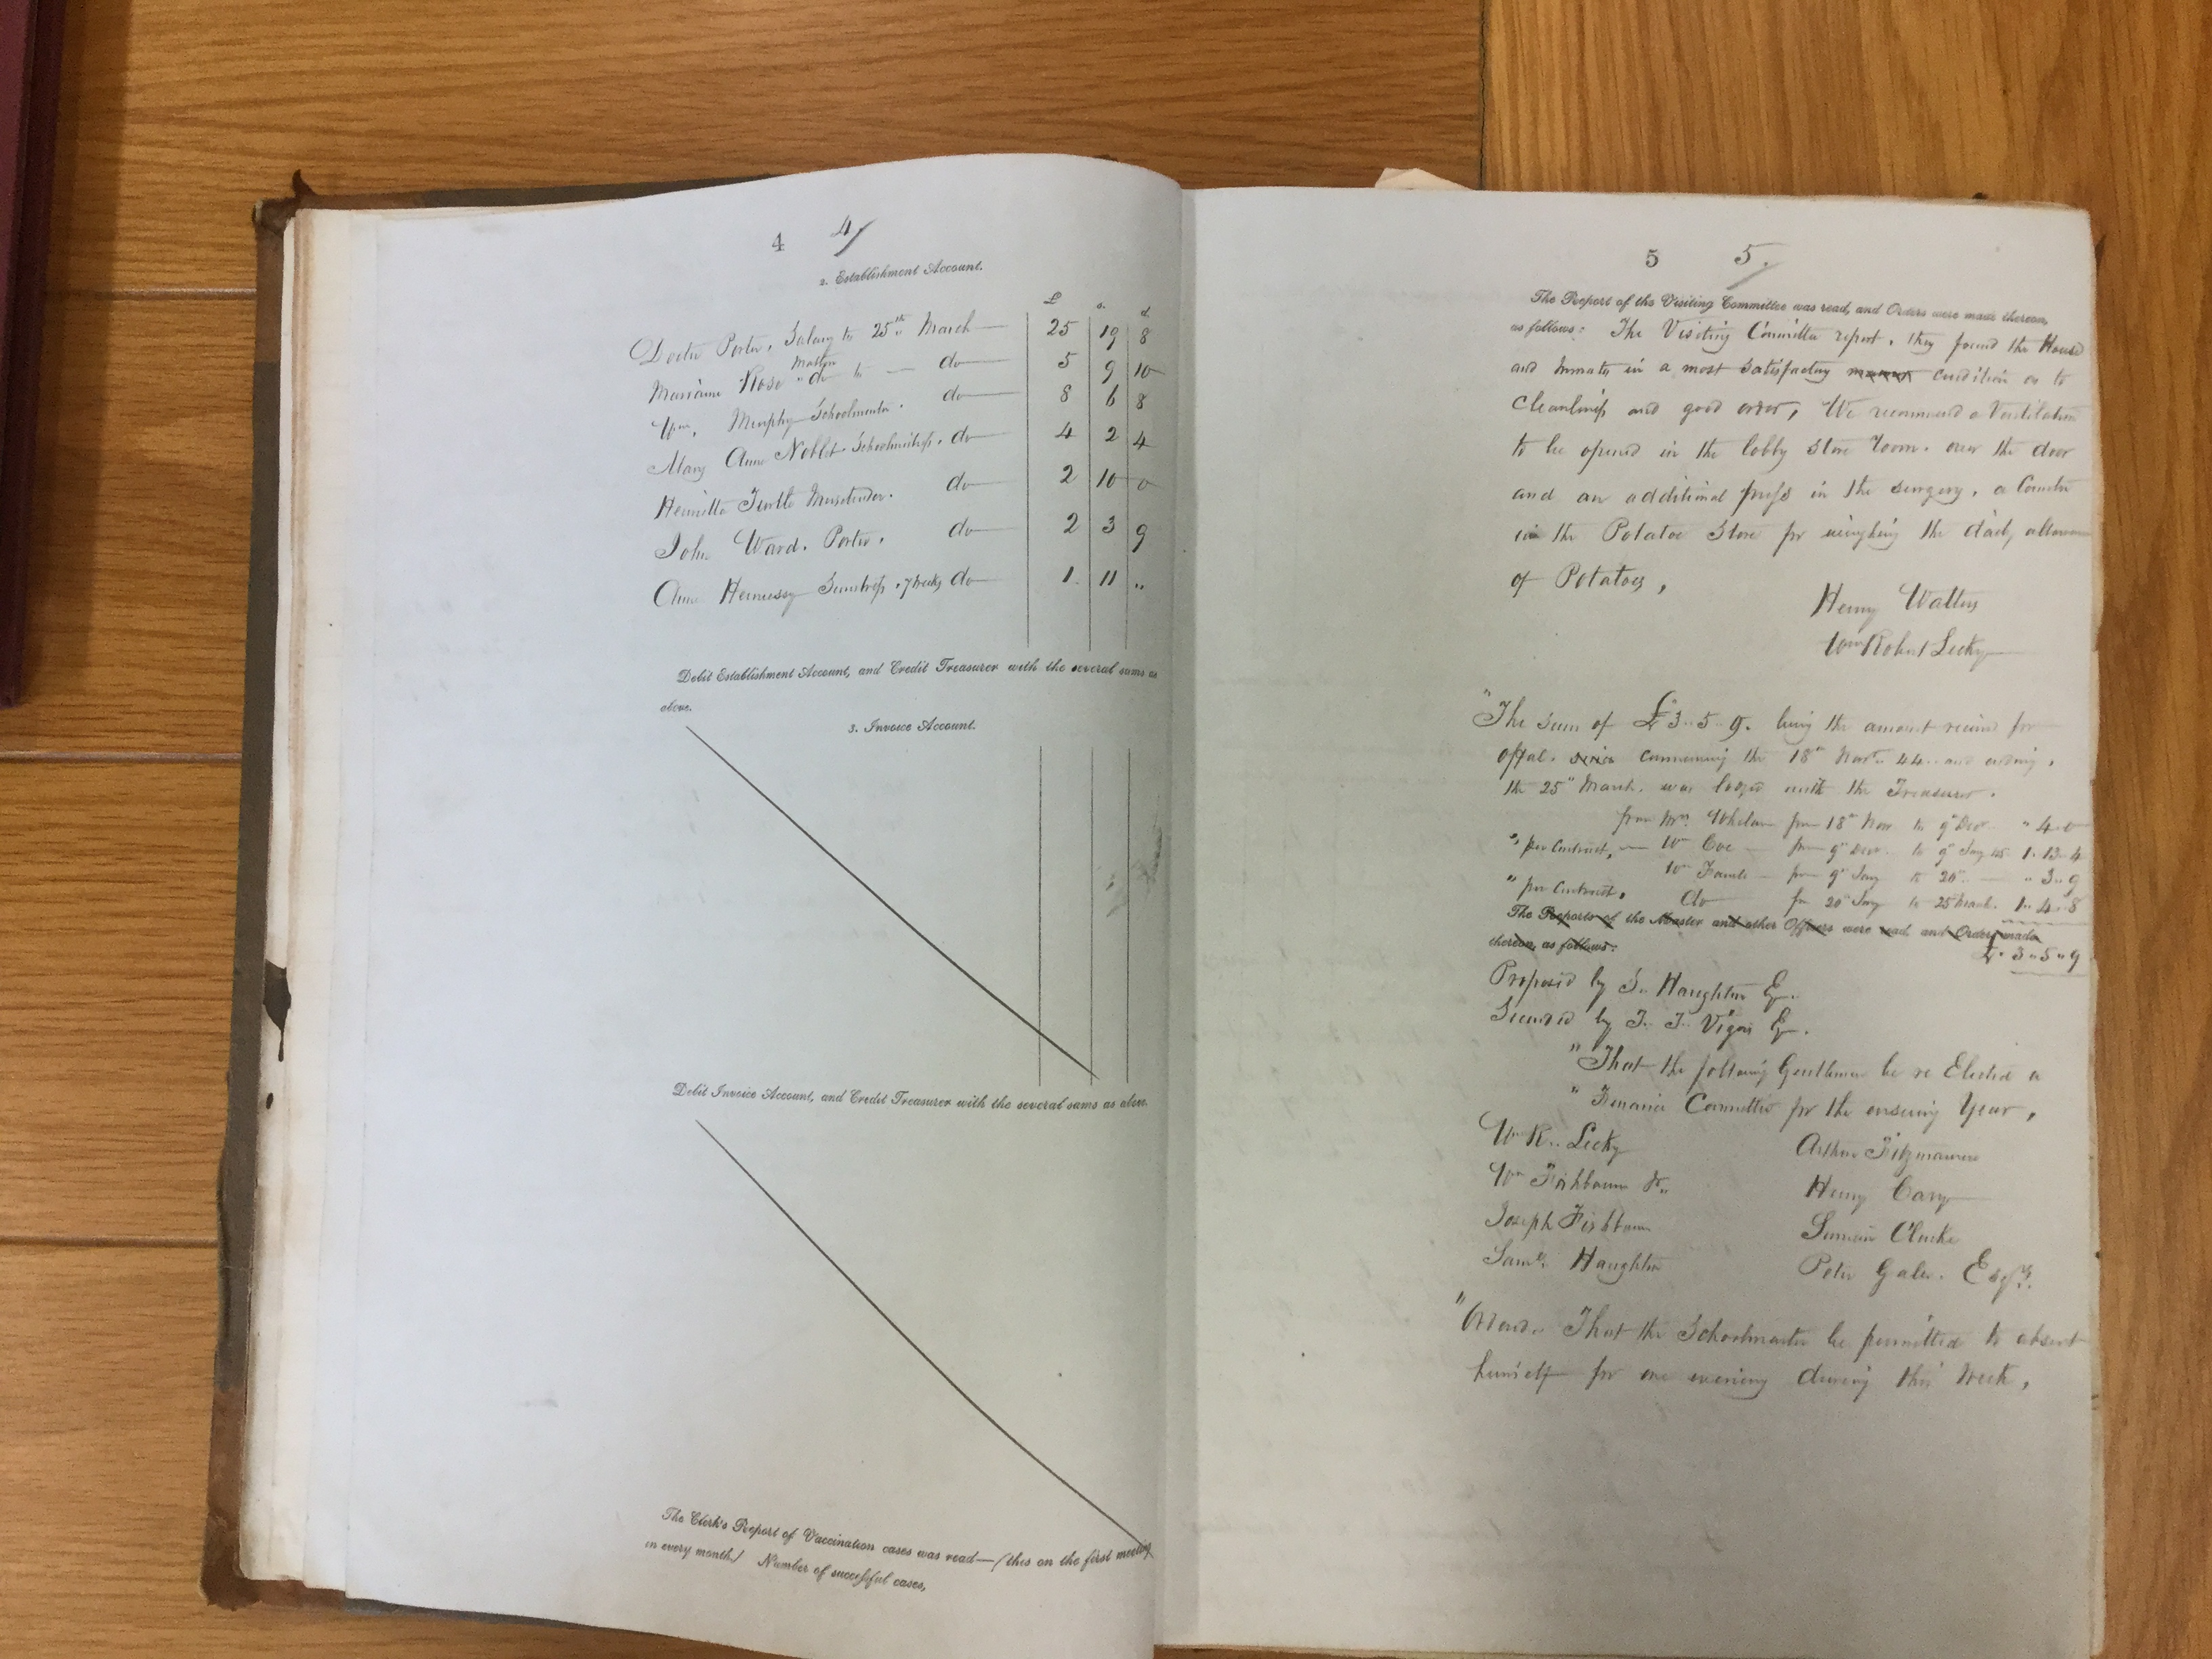 4 4/
2. Establishment Account.
£ s. d
Doctor Porter, Salary to 25th March 25 19 8
Marianne Rose Matron do to do 5 9 10
Wm. Murphy Schoolmaster. do 8 6 8
Mary Anne Noblet Schoolmistress. do 4 2 4
Nursetender. do 2 10 0
John Ward. Porter. do 2 3 9
Anne Hennessy 7 weeks do 1 11 "
Debit Establishment Account, and Credit Treasurer with the several sums as
above.
3. Invoice Account.
Debit Invoice Account, and Credit Treasurer with the several sums as above.
The Clerk's Report of Vaccination cases was read—(this on the first meeting
in every month) Number of successful cases,
5 5.
The Report of the Visiting Committee was read, and Orders were made thereon,
as follows: The Visiting Committee report, they found the House
and Inmates in a most satisfactory condition as to
cleanliness and good order, We recommend a Ventilator
to be opened in the lobby store room. over the door
and an additional press in the surgery, a Counter
in the Potatoe Store for weighing the daily allowance
of Potatoes,
Henry Watters
Wm Robert Lecky
"The sum of £3..5..9. being the amount received for
offal. commencing the 18th Novr. 44. and ending,
the 25th March. was lodged with the Treasurer.
from Mr. Whelan from 18th Nov to 9th Decr. " 4. 0
" per Contract, Wm Coe from 9th Decr. to 9th Jany 45 1. 13. 4
Wm from 9th Jany to 20th " 3.. 9
" per Contract, do fm 20th Jany to 25 March. 1.. 4.. 8
The Reports of the Master and other Officers were read and Orders made
thereon, as follows:
£. 3..5..9
Proposed by S. Haughton Esq.
Seconded by T. T. Vigors Esq.
"That the following Gentlemen be re Elected a
" Finance Committee for the ensuing Year,
W R.. Lecky Arthur Fitzmaurice
Wm Fishbourne Jr.. Henry Cary
Joseph Fishbourne Simeon Clarke
Saml. Haughton Peter Gale. Esqrs.
"Ordered.. That the Schoolmaster be permitted to absent
himself for one evening during this Week,